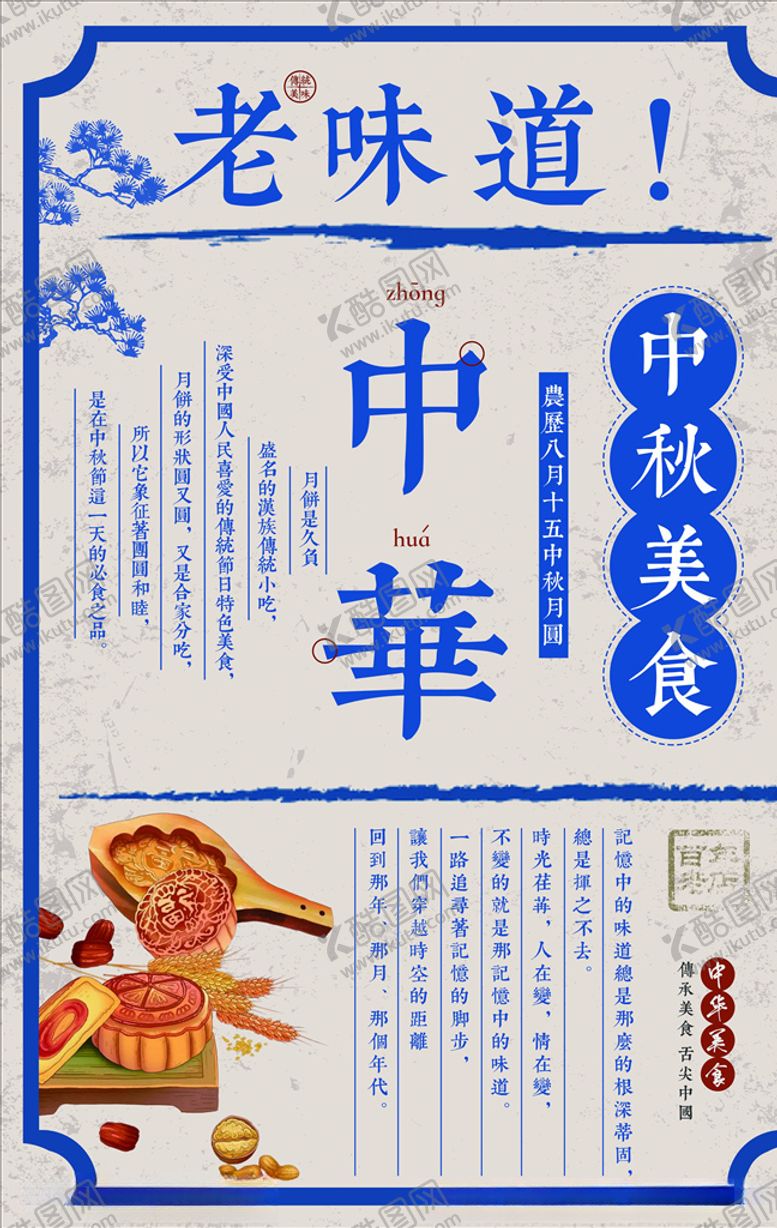 老味道！
傳統
美味
zhōng
中
huá
華
中秋美食
農歷八月十五中秋月圓
月餅是久負
盛名的漢族傳統小吃，
深受中國人民喜愛的傳統節日特色美食，
月餅的形狀圓又圓，又是合家分吃，
所以它象征著團圓和睦，
是在中秋節這一天的必食之品。
百年
老店
中华美食
傳承美食 舌尖中國
記憶中的味道總是那麼的根深蒂固，
總是揮之不去。
時光荏苒，人在變，情在變，
不變的就是那記憶中的味道。
一路追尋著記憶的脚步，
讓我們穿越時空的距離
回到那年、那月、那個年代。
酷图网
www.ikutu.com